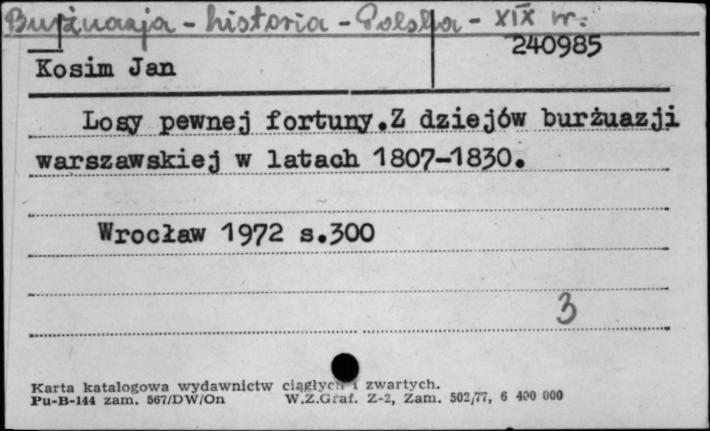 Burżuazja - historia - Polska - XIX w.
240985
Kosim Jan
Losy pewnej fortuny.Z dziejów burżuazji
warszawskiej w latach 1807-1830.
Wrocław 1972 s.300
3
Karta katalogowa wydawnictw ciągłych i zwartych.
Pu-B-144 zam. 567/DW/On W.Z.Graf. Z-2, Zam. 502/77, 6 400 000